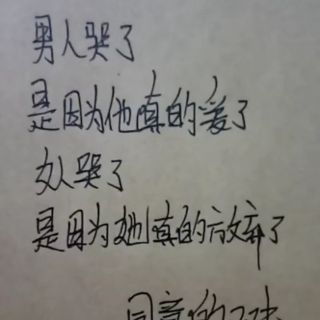 男人哭了
是因为他真的爱了
女人哭了
是因为她真的放弃了
同意的